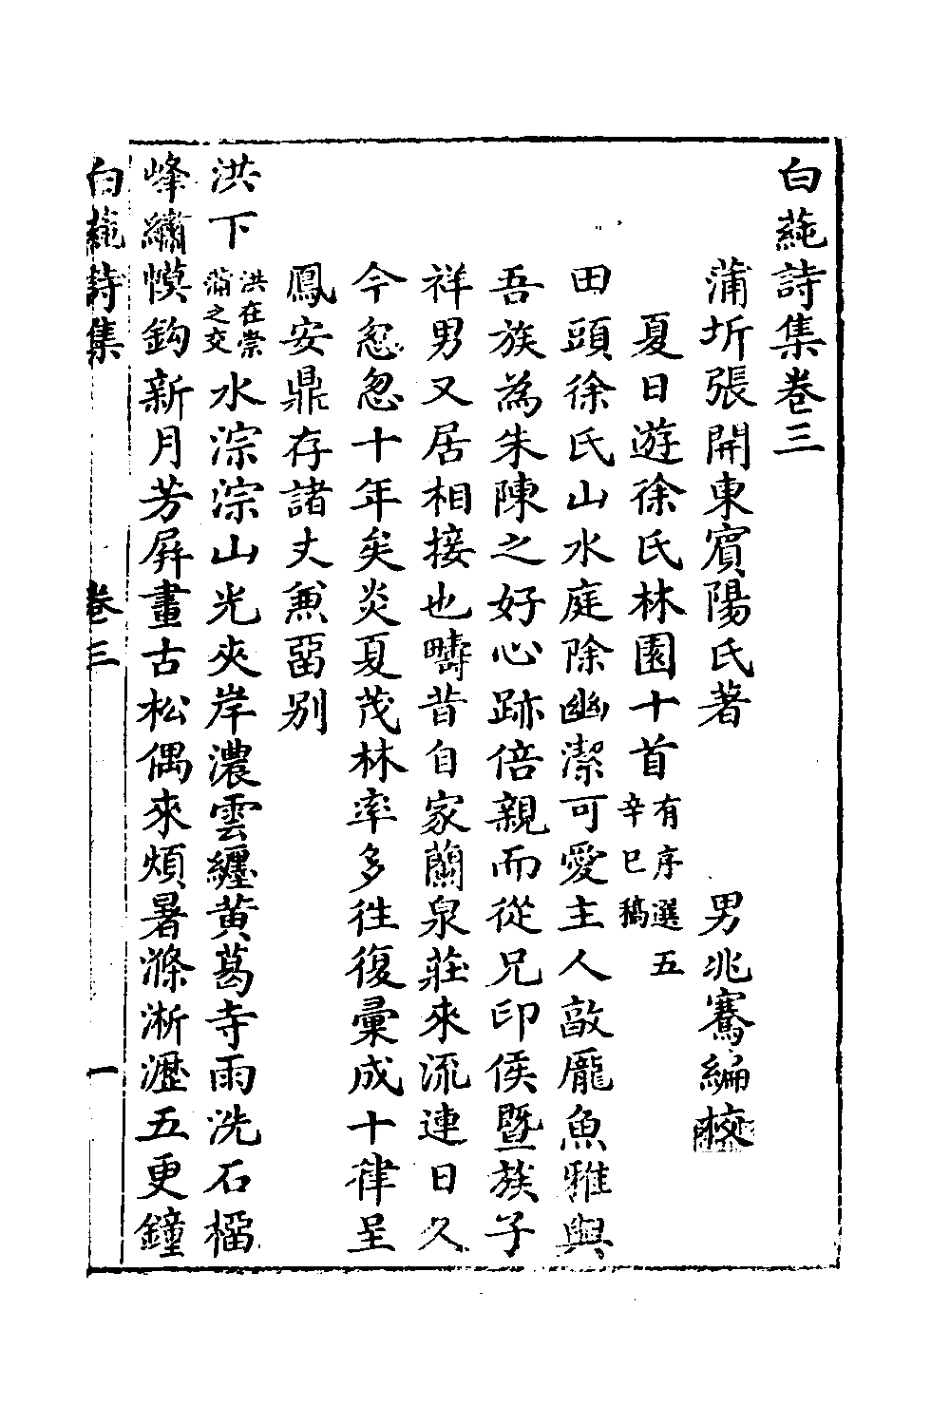 白蒓詩集卷三
蒲圻張開東賓陽氏著　男兆騫編校
夏日遊徐氏林園十首有序選五辛巳稿
田頭徐氏山水庭除幽潔可愛主人敵龎魚雅與
吾族為朱陳之好心跡倍親而從兄印侯暨族子
祥男又居相接也疇昔自家蘭泉莊來流連日久
今忽忽十年矣炎夏茂林率多徃復彙成十律呈
鳳安鼎存諸丈兼畱别
洪下洪在崇蒲之交水淙淙山光夾岸濃雲纏黄葛寺雨洗石橊
峰繡幙鈎新月芳屏畫古松偶來煩暑滌淅瀝五更鐘
白蒓詩集　卷三　一